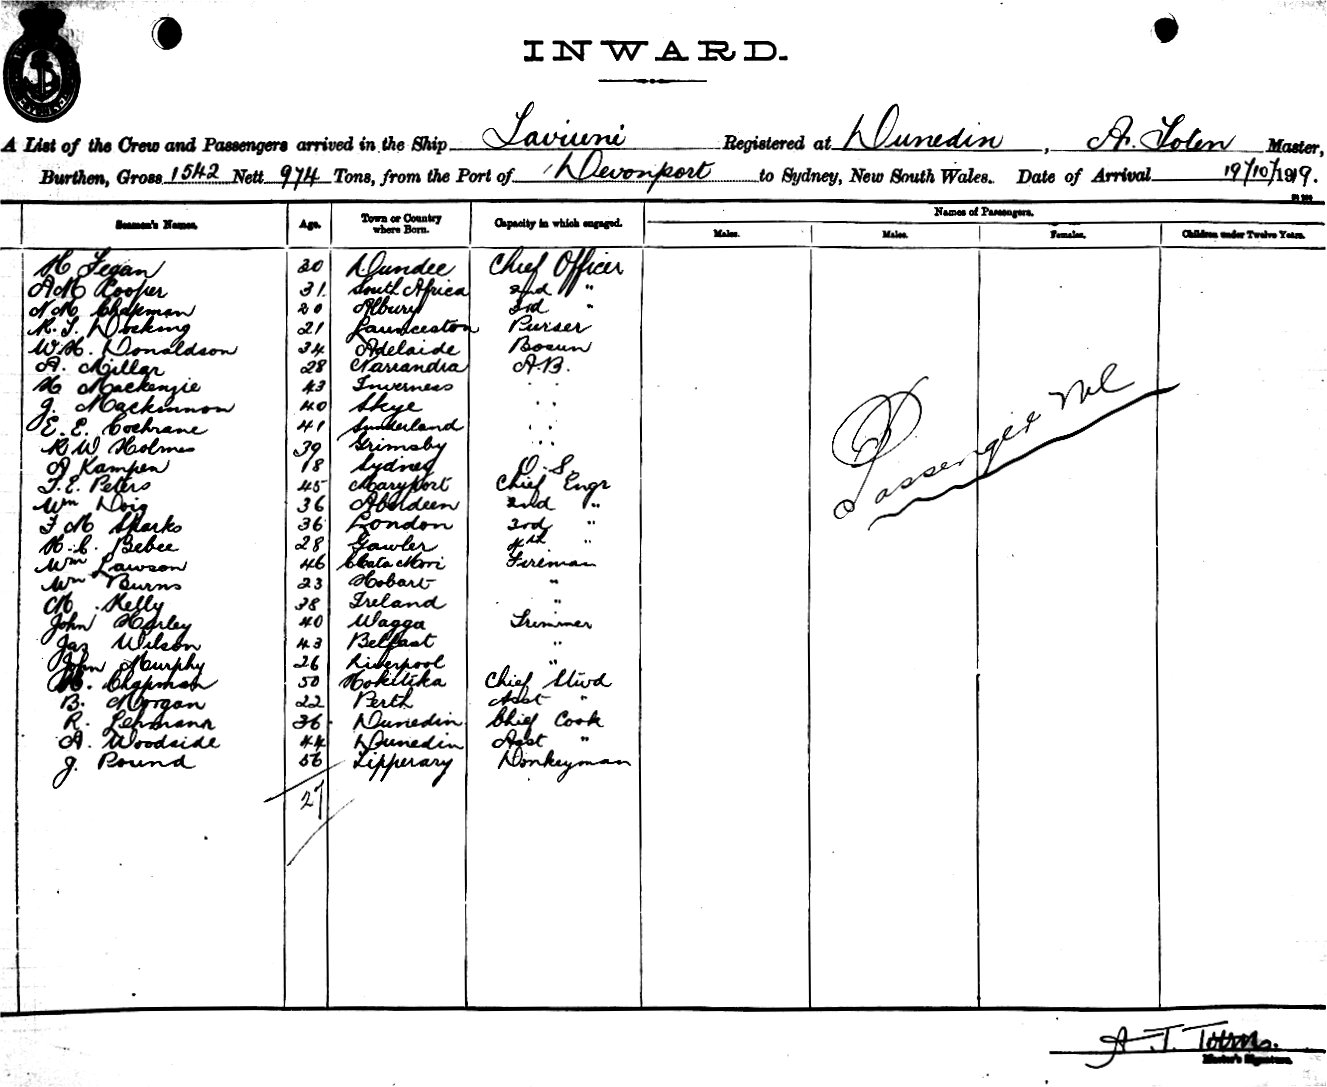 INWARD.
A List of the Crew and Passengers arrived in the Ship Taviuni Registered at Dunedin, A. Master,
Burthen, Gross 1542 Nett 974 Tons, from the Port of Devonport to Sydney, New South Wales. Date of Arrival 19/10/1919.
Names of Passengers.
Seamen's Names. Age. Town or Country where Born. Capacity in which engaged. Males. Males. Females. Children under Twelve Years.
H Fegan 30 Dundee Chief Officer
A M Cooper 31 South Africa 2nd "
N M Chapman 20 Albury 3rd "
R. T. Docking 21 Launceston Purser
W. H. Donaldson 34 Adelaide Bosun
A. Millar 28 Narrandra A.B.
H Mackenzie 43 Inverness " "
J. Mackinnon 40 Skye " "
E. E. Cochrane 41 Sunderland " "
R W Holmes 39 Grimsby " "
A Kampen 18 Sydney O.S.
T. E. Peters 45 Maryport Chief Engr
Wm Doig 36 Aberdeen 2nd "
F M Sparks 36 London 3rd "
H. C. Bebee 28 Gawler 4th "
Wm Lawson 46 Fireman
Wm Burns 23 Hobart "
M. Kelly 38 Ireland "
John Harley 40 Wagga Trimmer
Jas Wilson 43 Belfast "
John Murphy 26 Liverpool "
H. Chapman 50 Hokitika Chief Stwd
B. Morgan 22 Perth Asst "
R. Lehmann 36 Dunedin Chief Cook
A. Woodside 44 Dunedin Asst "
J. Pound 56 Tipperary Donkeyman
27
Passenger Nil
A. T. Toten
Master's Signature.